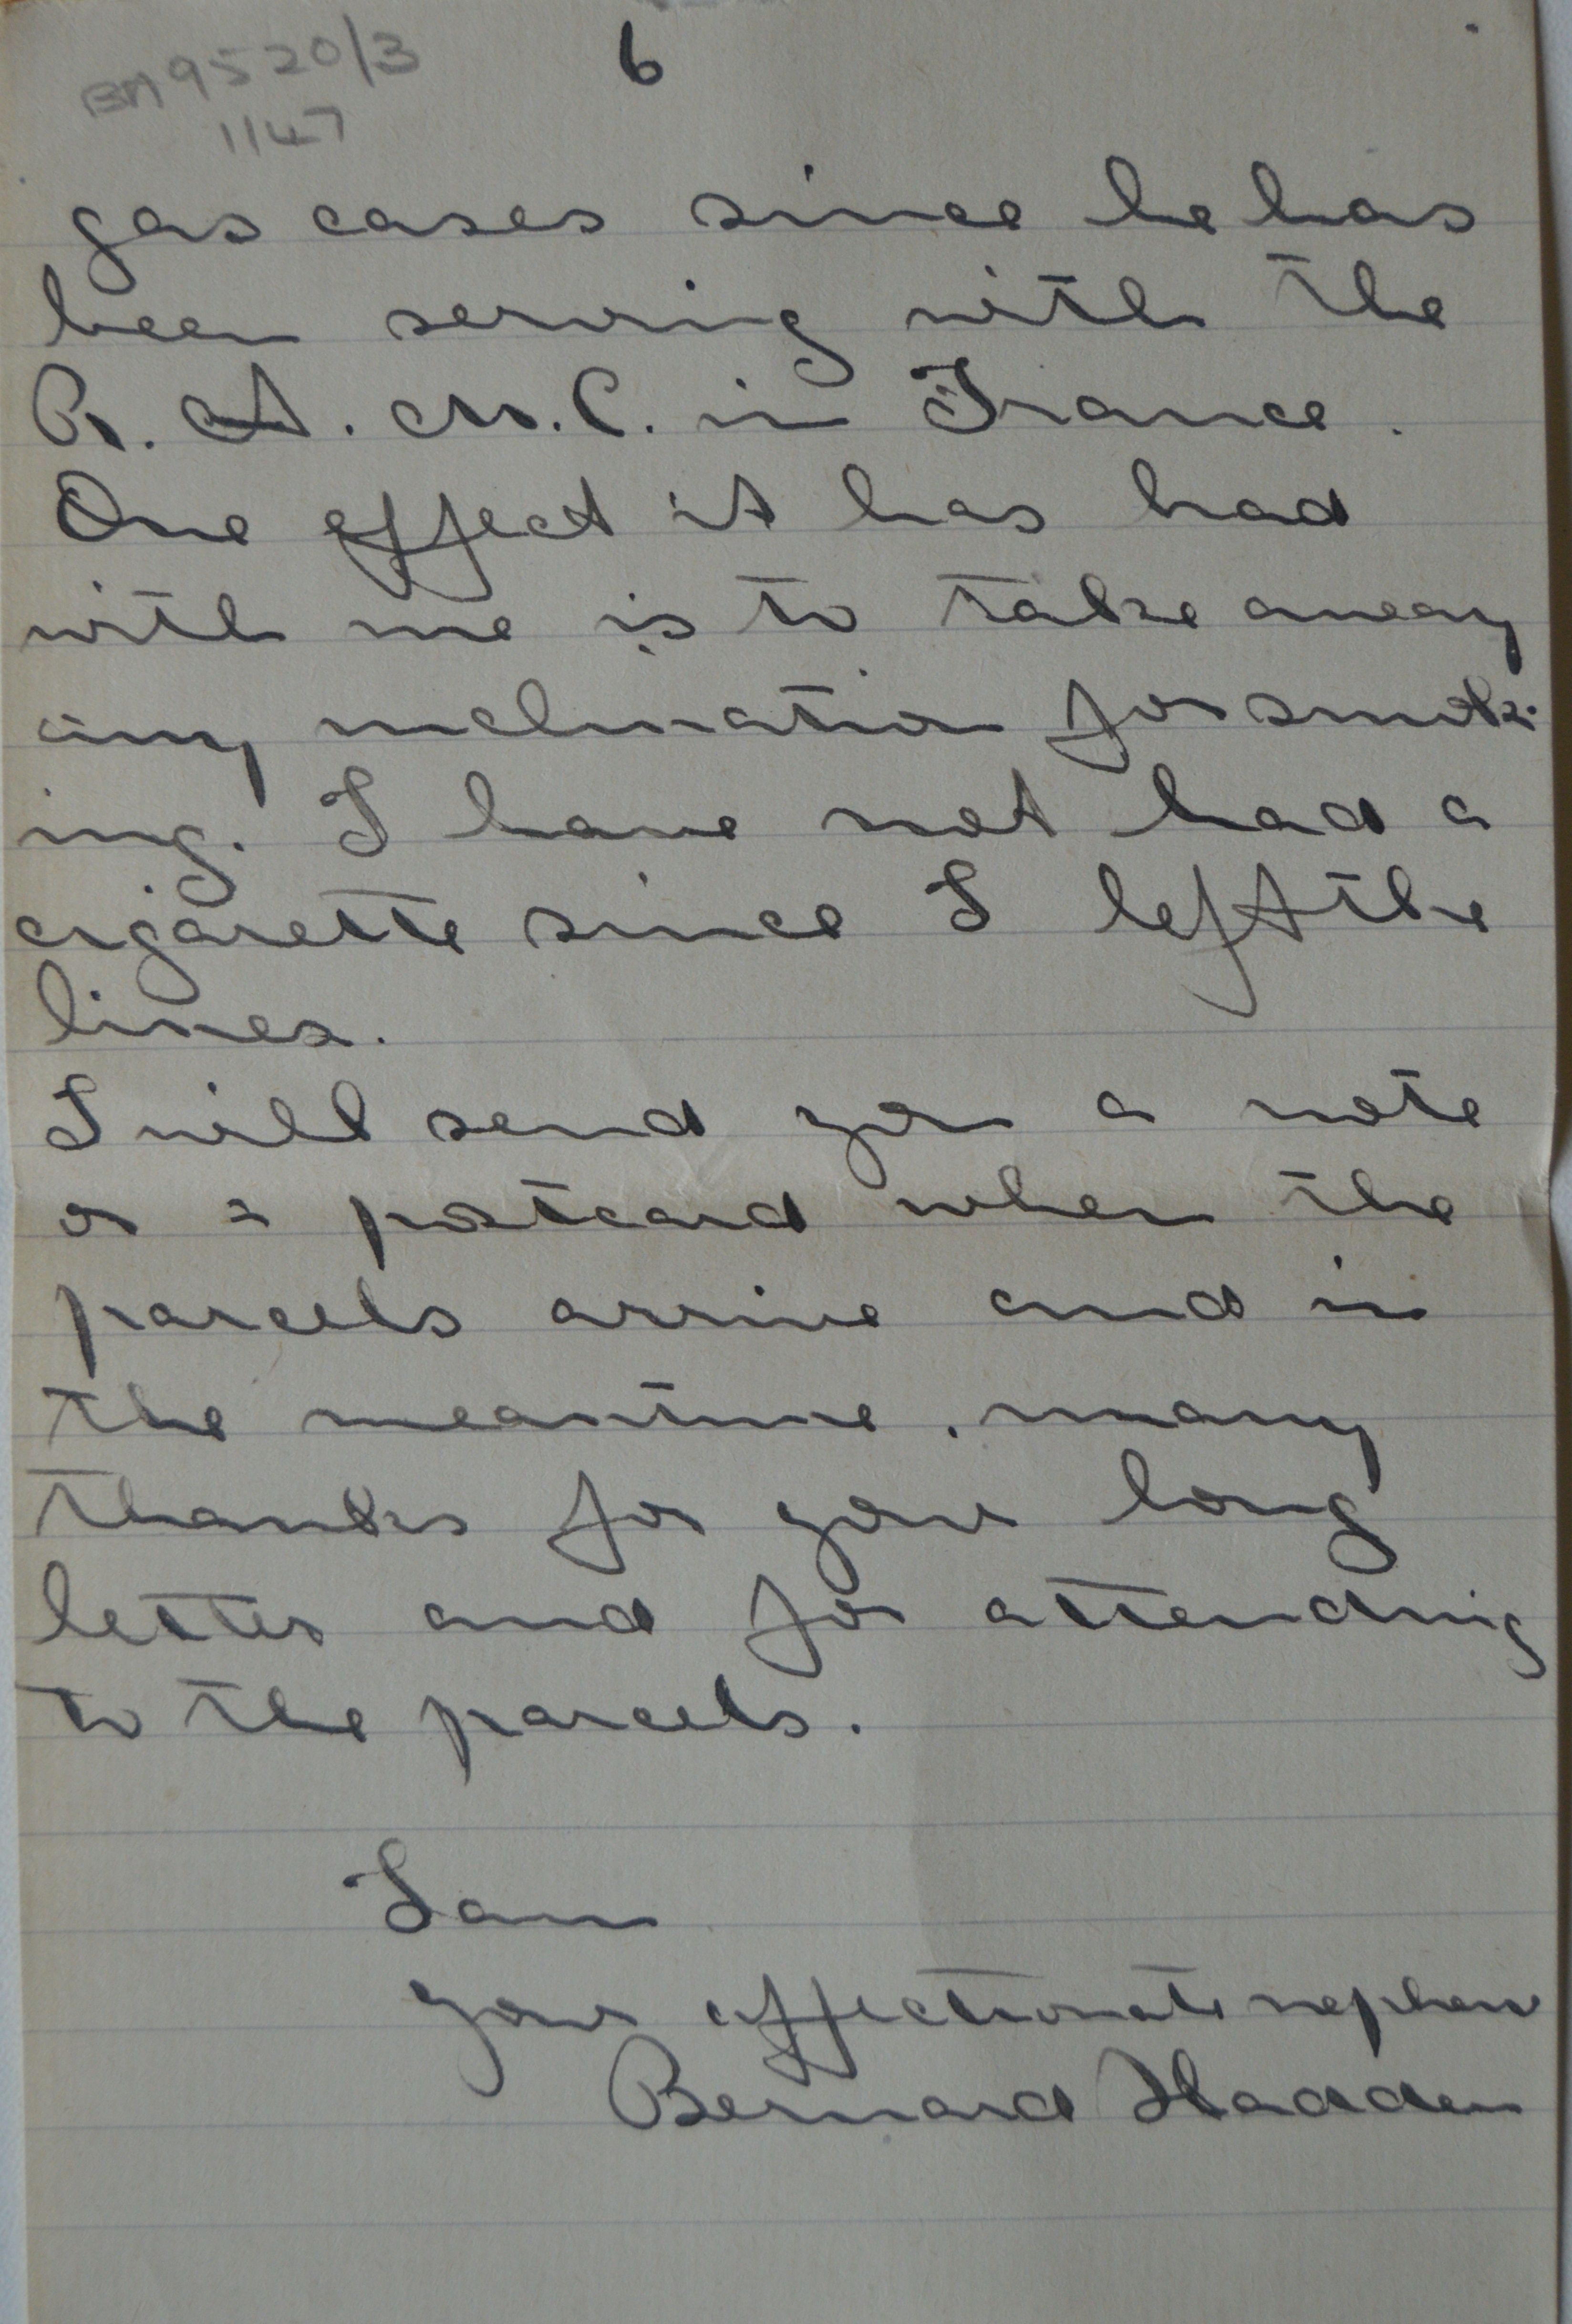 BM9520/3
1147
6
gas cases since he has
been serving with the
R.A.M.C. in France.
One effect it has had
with me is to take away
any inclination for smok-
ing. I have not had a
cigarette since I left the
lines.
I will send you a note
or a postcard when the
parcels arrive and in
the meantime, many
thanks for your long
letter and for attending
to the parcels.
I am
your affectionate nephew
Bernard Hadden